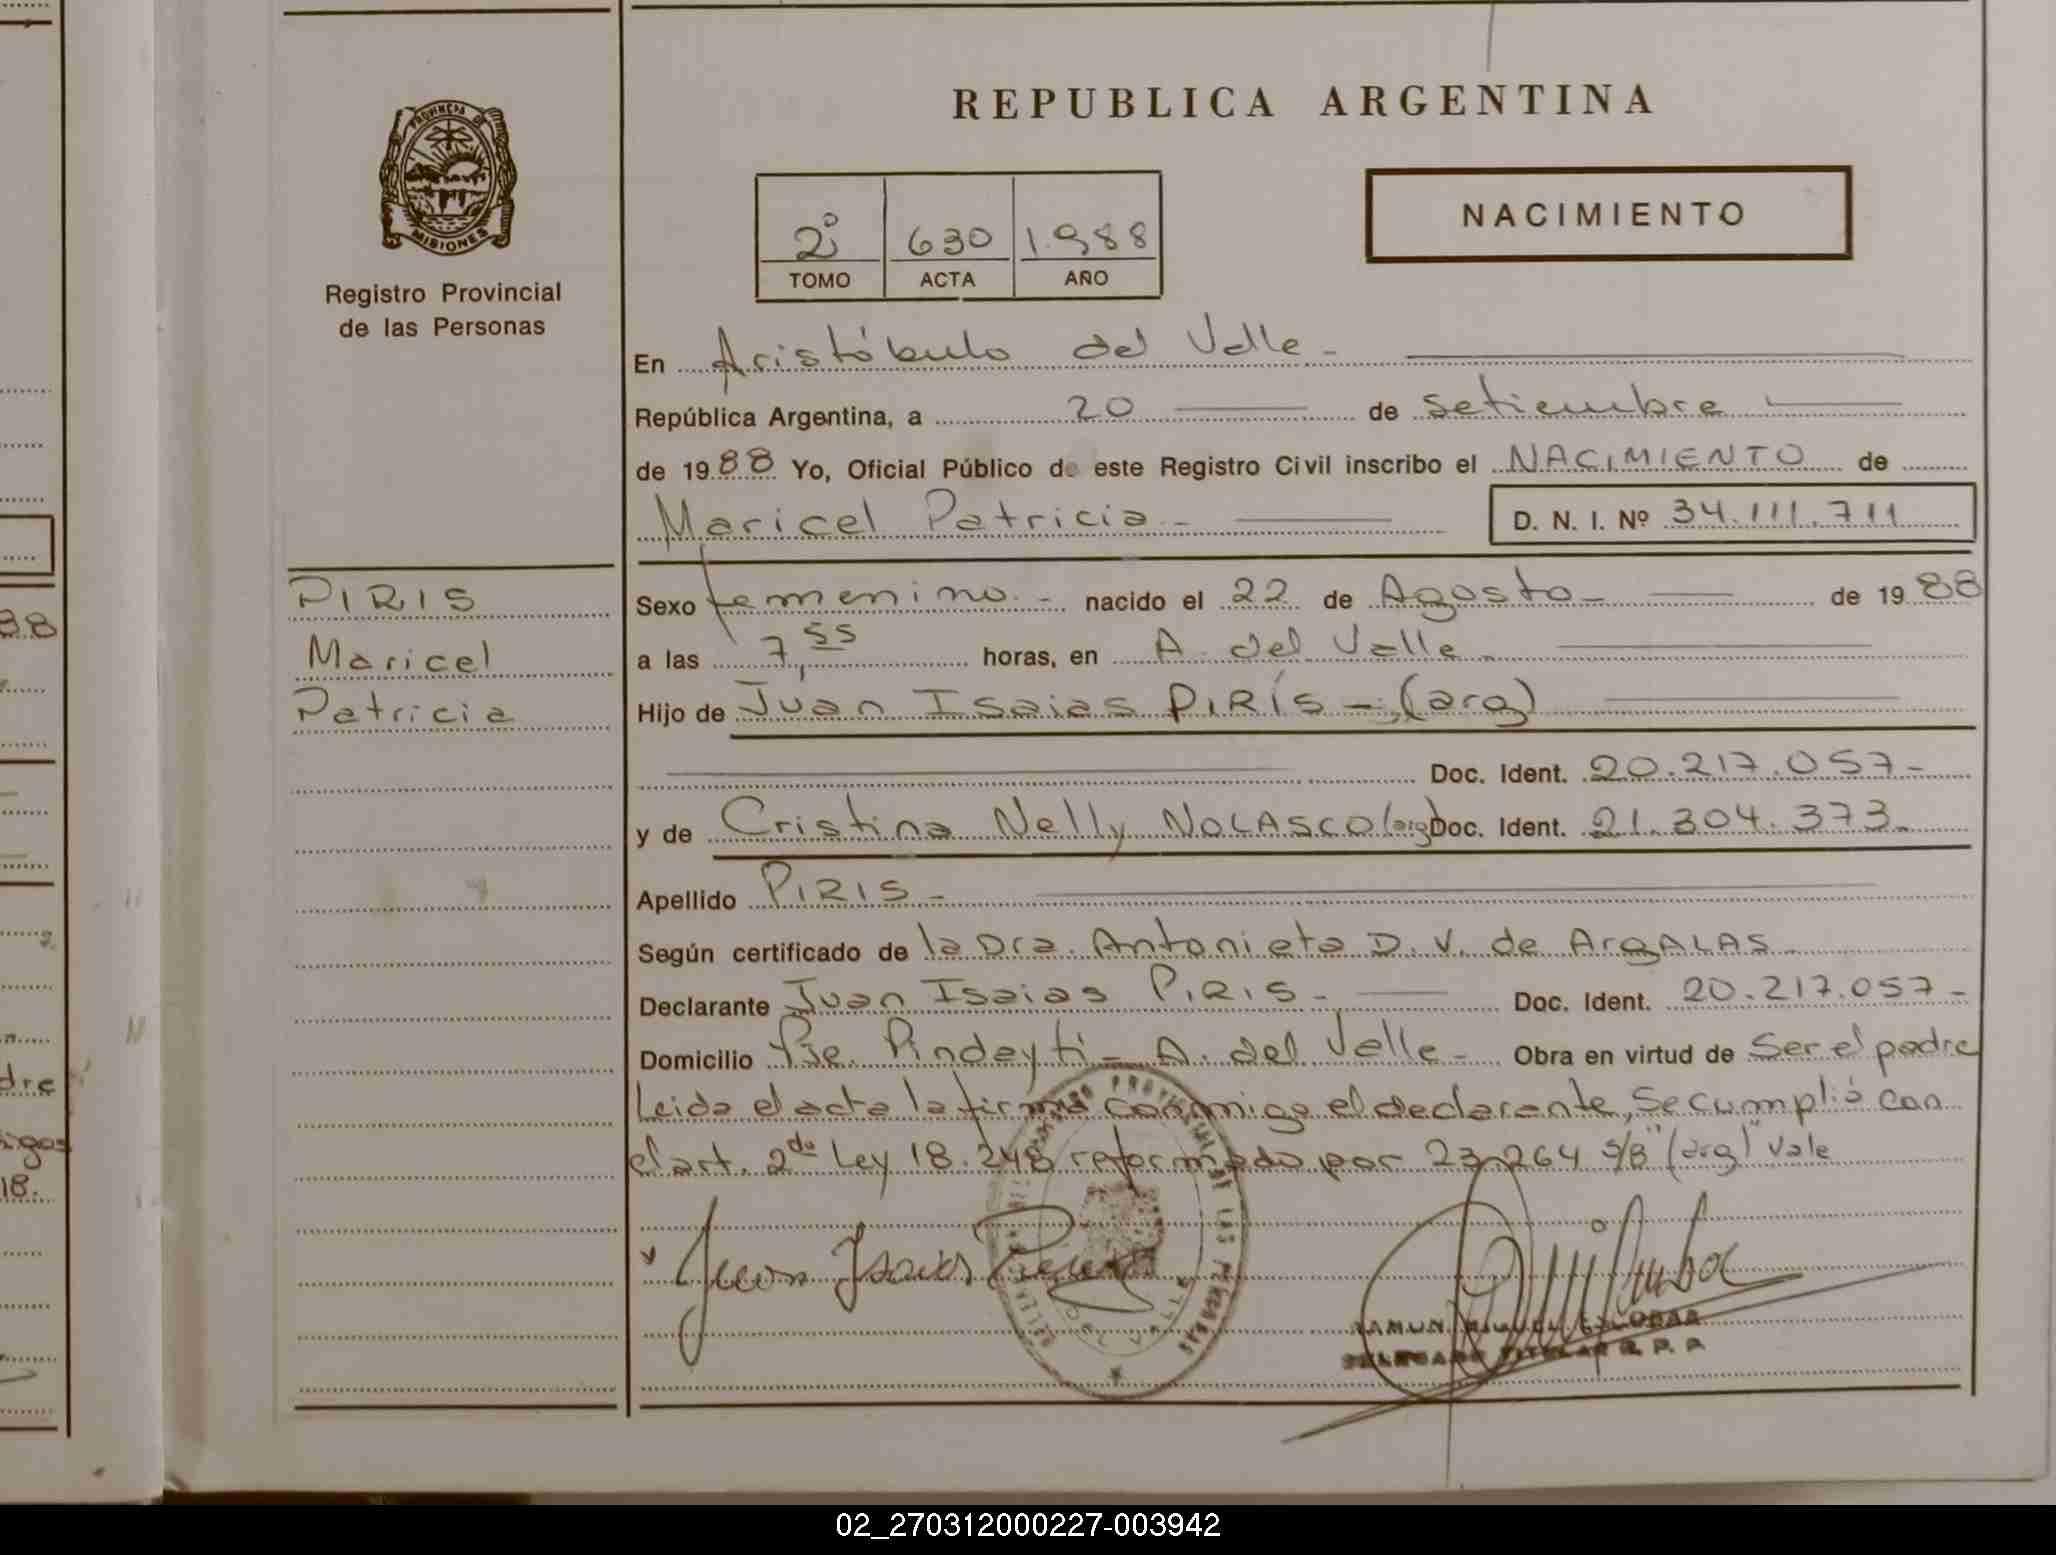 REPUBLICA ARGENTINA
PROVINCIA DE
MISIONES
Registro Provincial
de las Personas
2º 630 1.988
TOMO ACTA AÑO
NACIMIENTO
En Aristóbulo del Valle -
República Argentina, a 20 de setiembre
de 1988 Yo, Oficial Público de este Registro Civil inscribo el NACIMIENTO de
Maricel Patricia - D. N. I. Nº 34.111.711
PIRIS
Maricel
Patricia
Sexo femenino. - nacido el 22 de Agosto - de 1988
a las 7,55 horas, en A. del Valle -
Hijo de Juan Isaias PIRÍS - (arg)
Doc. Ident. 20.217.057 -
y de Cristina Nelly NOLASCO (arg) Doc. Ident. 21.304.373 -
Apellido PIRIS -
Según certificado de la Dra. Antonieta D. V. de ArgALAS
Declarante Juan Isaias PIRIS - Doc. Ident. 20.217.057 -
Domicilio Pje. Pindayti - A. del Valle - Obra en virtud de Ser el padre
Leida el acta la firma conmigo el declarante, Se cumplió con
el art. 2do Ley 18.248 reformado por 23.264 S/B "(arg)" Vale
Juan Isaias
RAMON MIGUEL ESCOBAR
DELEGADO TITULAR R. P. P.
38
dre
18.
02_270312000227-003942